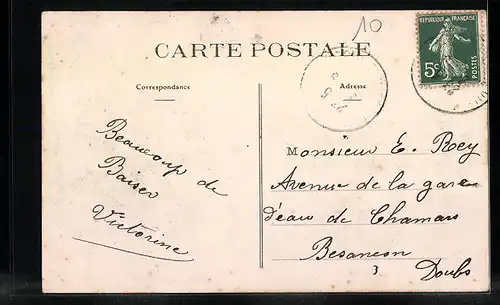 10
REPUBLIQUE FRANÇAISE
5c
POSTES
CARTE POSTALE
Correspondance
Adresse
Beaucoup de
Baiser
Victorine
Monsieur E. Rey
Avenue de la gare
d'eau de Chamars
Besançon
3
Doubs